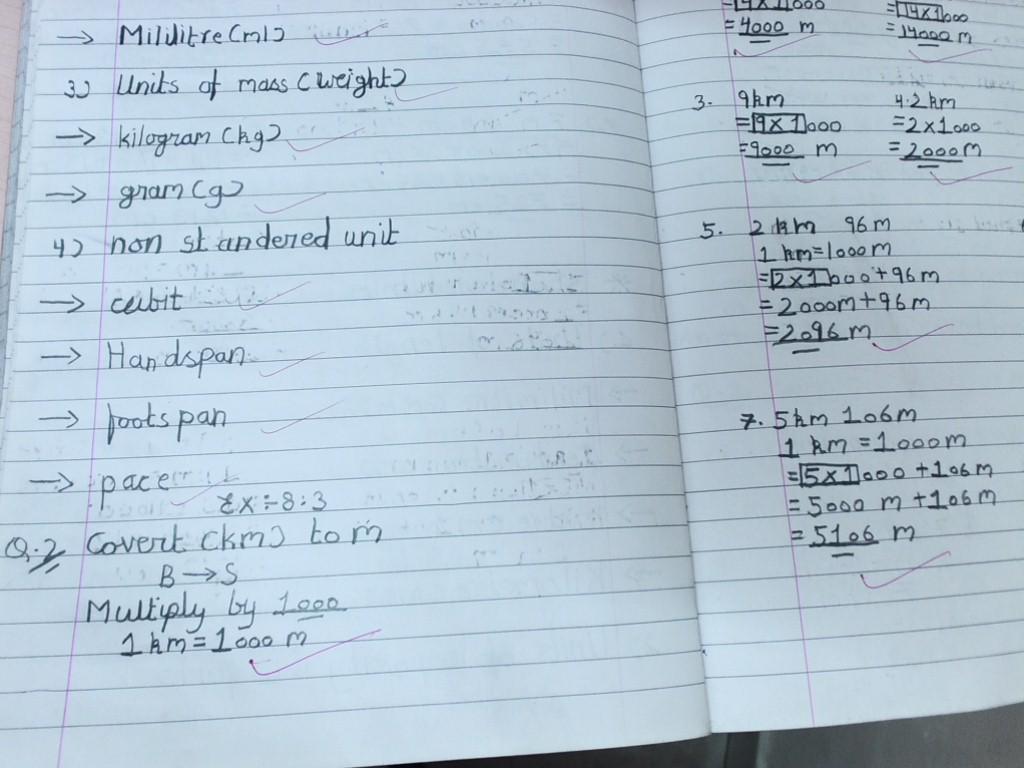 → Mililitre (ml)
3) Units of mass (weight)
→ kilogram (kg)
→ gram (g)
4) non standered unit
→ cubit
→ Handspan
→ footspan
→ pace
Ex:-8.3
Q.2 Covert (km) to m
B → S
Multiply by 1000
1 km = 1000 m
=4000 m
=14×1000
=14000 m
3. 9km
=9×1000
=9000 m
4. 2 km
=2×1000
=2000m
5. 2 km 96m
1 km=1000m
=2×1000+96m
=2000m+96m
=2096 m
7. 5km 106m
1 km =1000m
=5×1000 +106m
=5000 m +106m
=5106 m